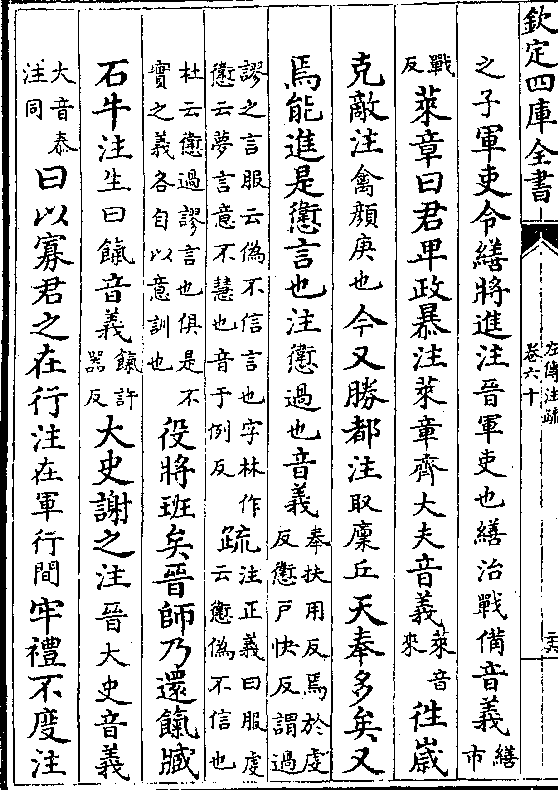 欽定四庫全書
左傳注疏
卷六十
之子軍吏令繕將進注晉軍吏也繕治戰備音義繕市
戰反萊章曰君卑政暴注萊章齊大夫音義萊音來往歲
克敵注禽顏庚也今又勝都注取廩丘天奉多矣又
焉能進是躗言也注躗過也音義奉扶用反焉於虔反躗戶快反謂過
謬之言服云偽不信言也字林作躗云夢言意不慧也音于例反疏注正義曰服虔云躗偽不信也
杜云躗過謬言也俱是不實之義各自以意訓也役將班矣晉師乃還餼臧
石牛注生曰餼音義餼許器反大史謝之注晉大史音義
大音泰注同曰以寡君之在行注在軍行間牢禮不度注